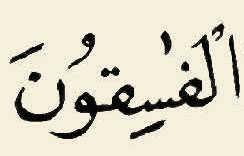 ٱلۡفَٰسِقُونَ